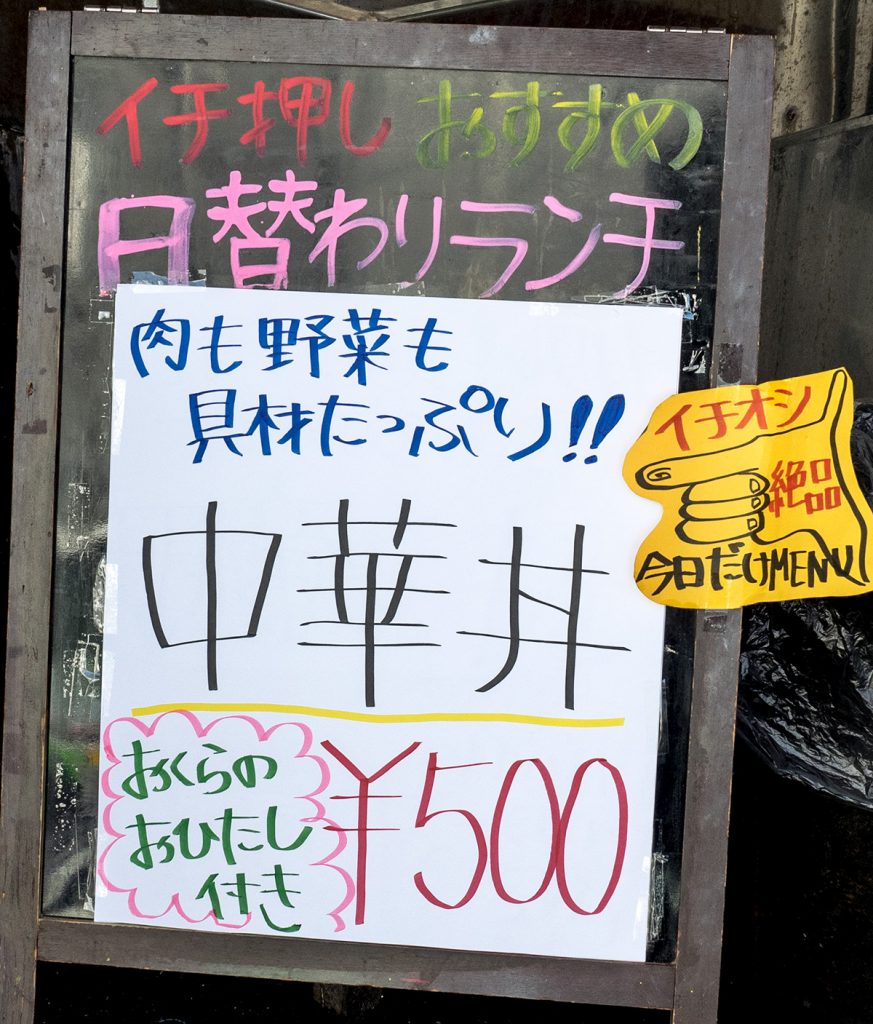 イチ押し おすすめ
日替わりランチ
肉も野菜も
具材たっぷり!!
中華丼
おくらの
おひたし
付き
¥500
イチオシ
絶品
今日だけMENU